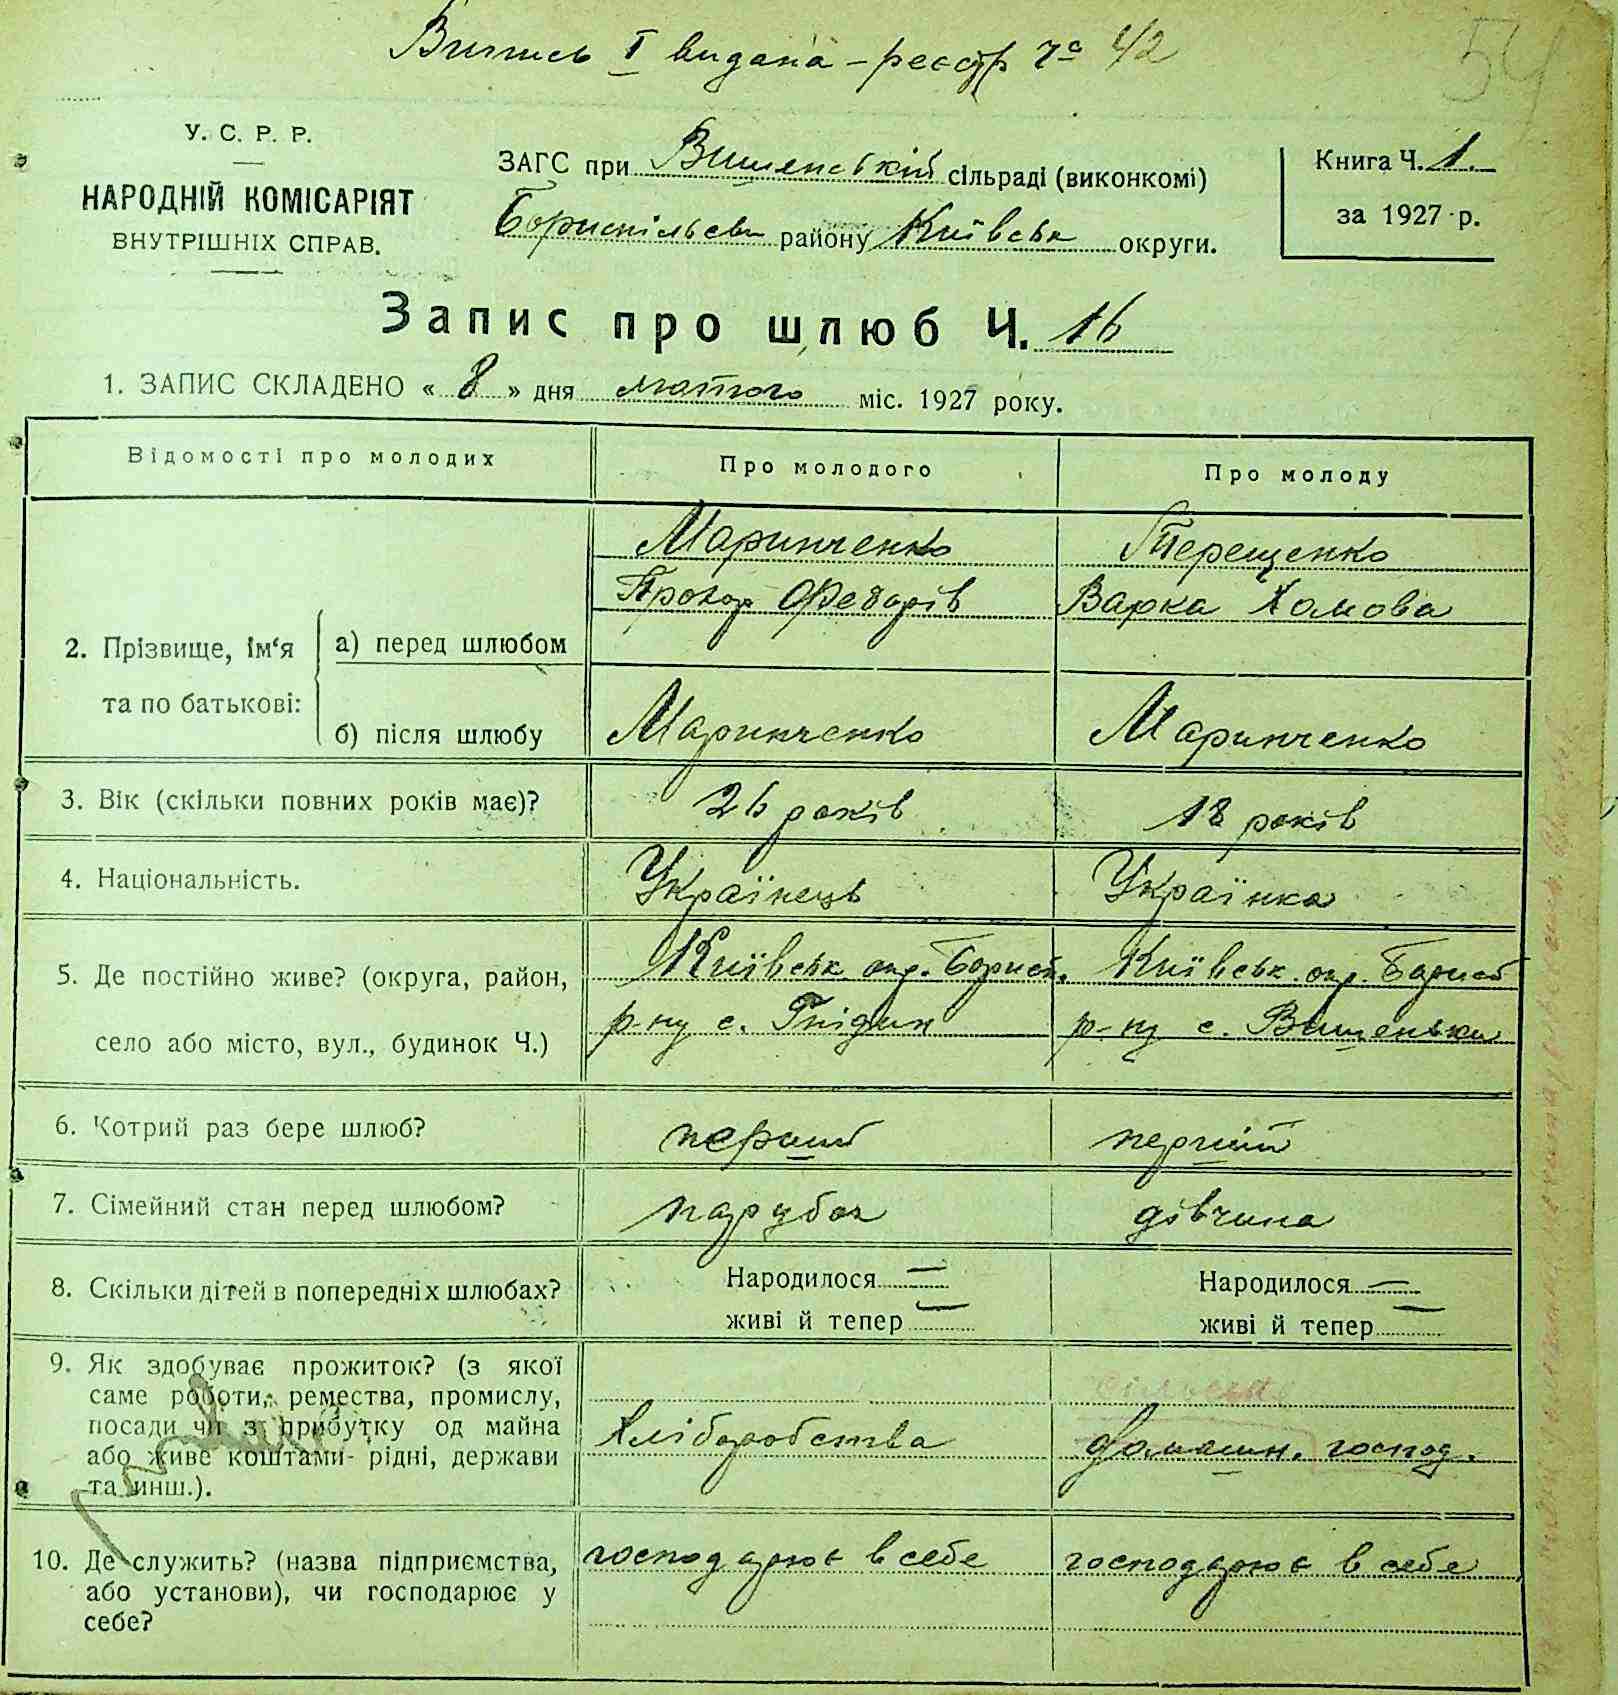 Випись І видана – реєстр Ч 42
54
У. С. Р. Р.
НАРОДНІЙ КОМІСАРІЯТ
ВНУТРІШНІХ СПРАВ.
ЗАГС при Вишенській сільраді (виконкомі)
Бориспільськ району Київськ округи.
Книга Ч. 1.
за 1927 р.
Запис про шлюб Ч. 16
1. ЗАПИС СКЛАДЕНО « 8 » дня лютого міс. 1927 року.
Відомості про молодих
Про молодого
Про молоду
2. Прізвище, ім‘я
та по батькові:
а) перед шлюбом
Маринченко
Прокор Федорів
Терещенко
Варка Хомова
б) після шлюбу
Маринченко
Маринченко
3. Вік (скільки повних років має)?
26 років
18 років
4. Національність.
Українець
Українка
5. Де постійно живе? (округа, район,
село або місто, вул., будинок Ч.)
Київськ окр. Борисп.
р-ну с. Гнідин
Київськ. окр. Борисп
р-ну с. Вищеньки
6. Котрий раз бере шлюб?
перший
перший
7. Сімейний стан перед шлюбом?
парубок
дівчина
8. Скільки дітей в попередніх шлюбах?
Народилося —
живі й тепер —
Народилося —
живі й тепер —
9. Як здобуває прожиток? (з якої
саме роботи, ремества, промислу,
посади чи з прибутку од майна
або живе коштами рідні, держави
та инш.).
Хліборобства
сільське
домашн. господ.
10. Де служить? (назва підприємства,
або установи), чи господарює у
себе?
господарює в себе
господарює в себе